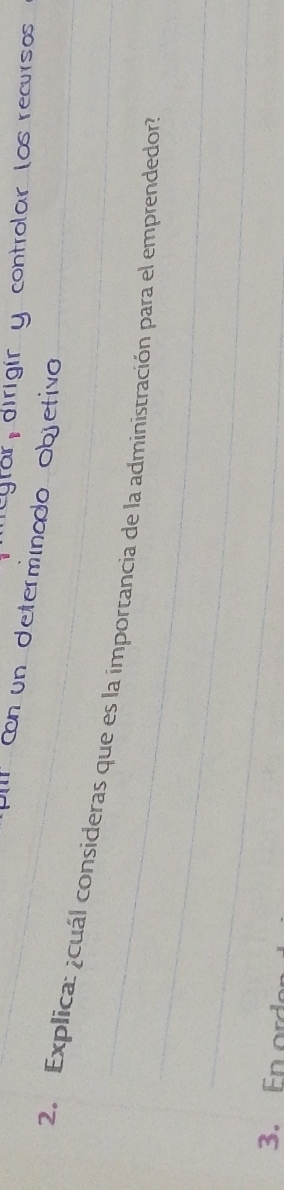 dirigir y controlar los recursos
con un determinado objetivo
2. Explica: ¿cuál consideras que es la importancia de la administración para el emprendedor?
3. En